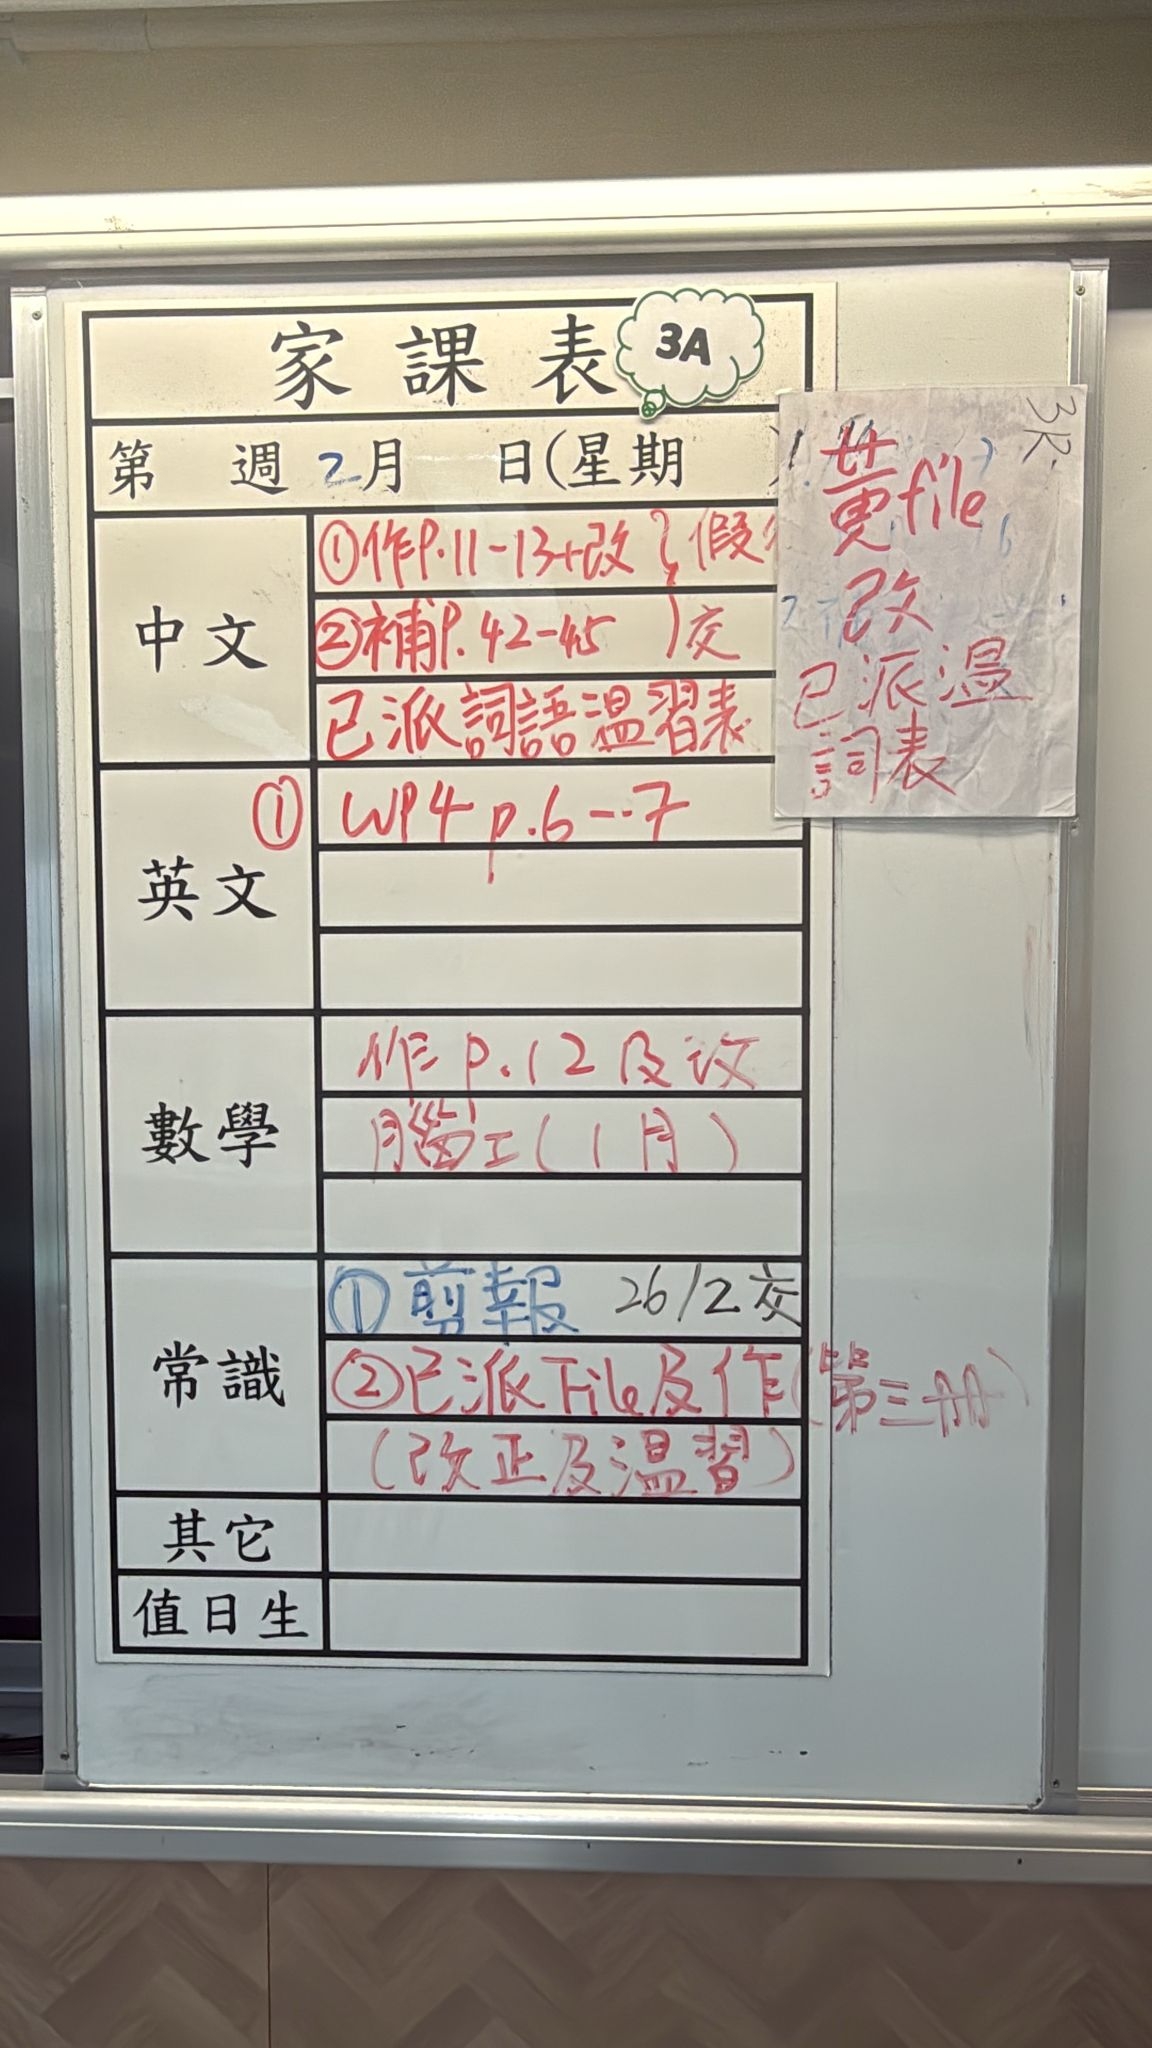 家課表 3A
第 週 2月 日(星期
中文
①作P.11-13+改 假
②補P.42-45 交
已派詞語溫習表
英文
① WP4 p.6-7
數學
作P.12及改
腦工(1月)
常識
①剪報 26/2交
②已派File及作(第三冊)
(改正及溫習)
其它
值日生
3R.
黄file
改
已派溫
詞表